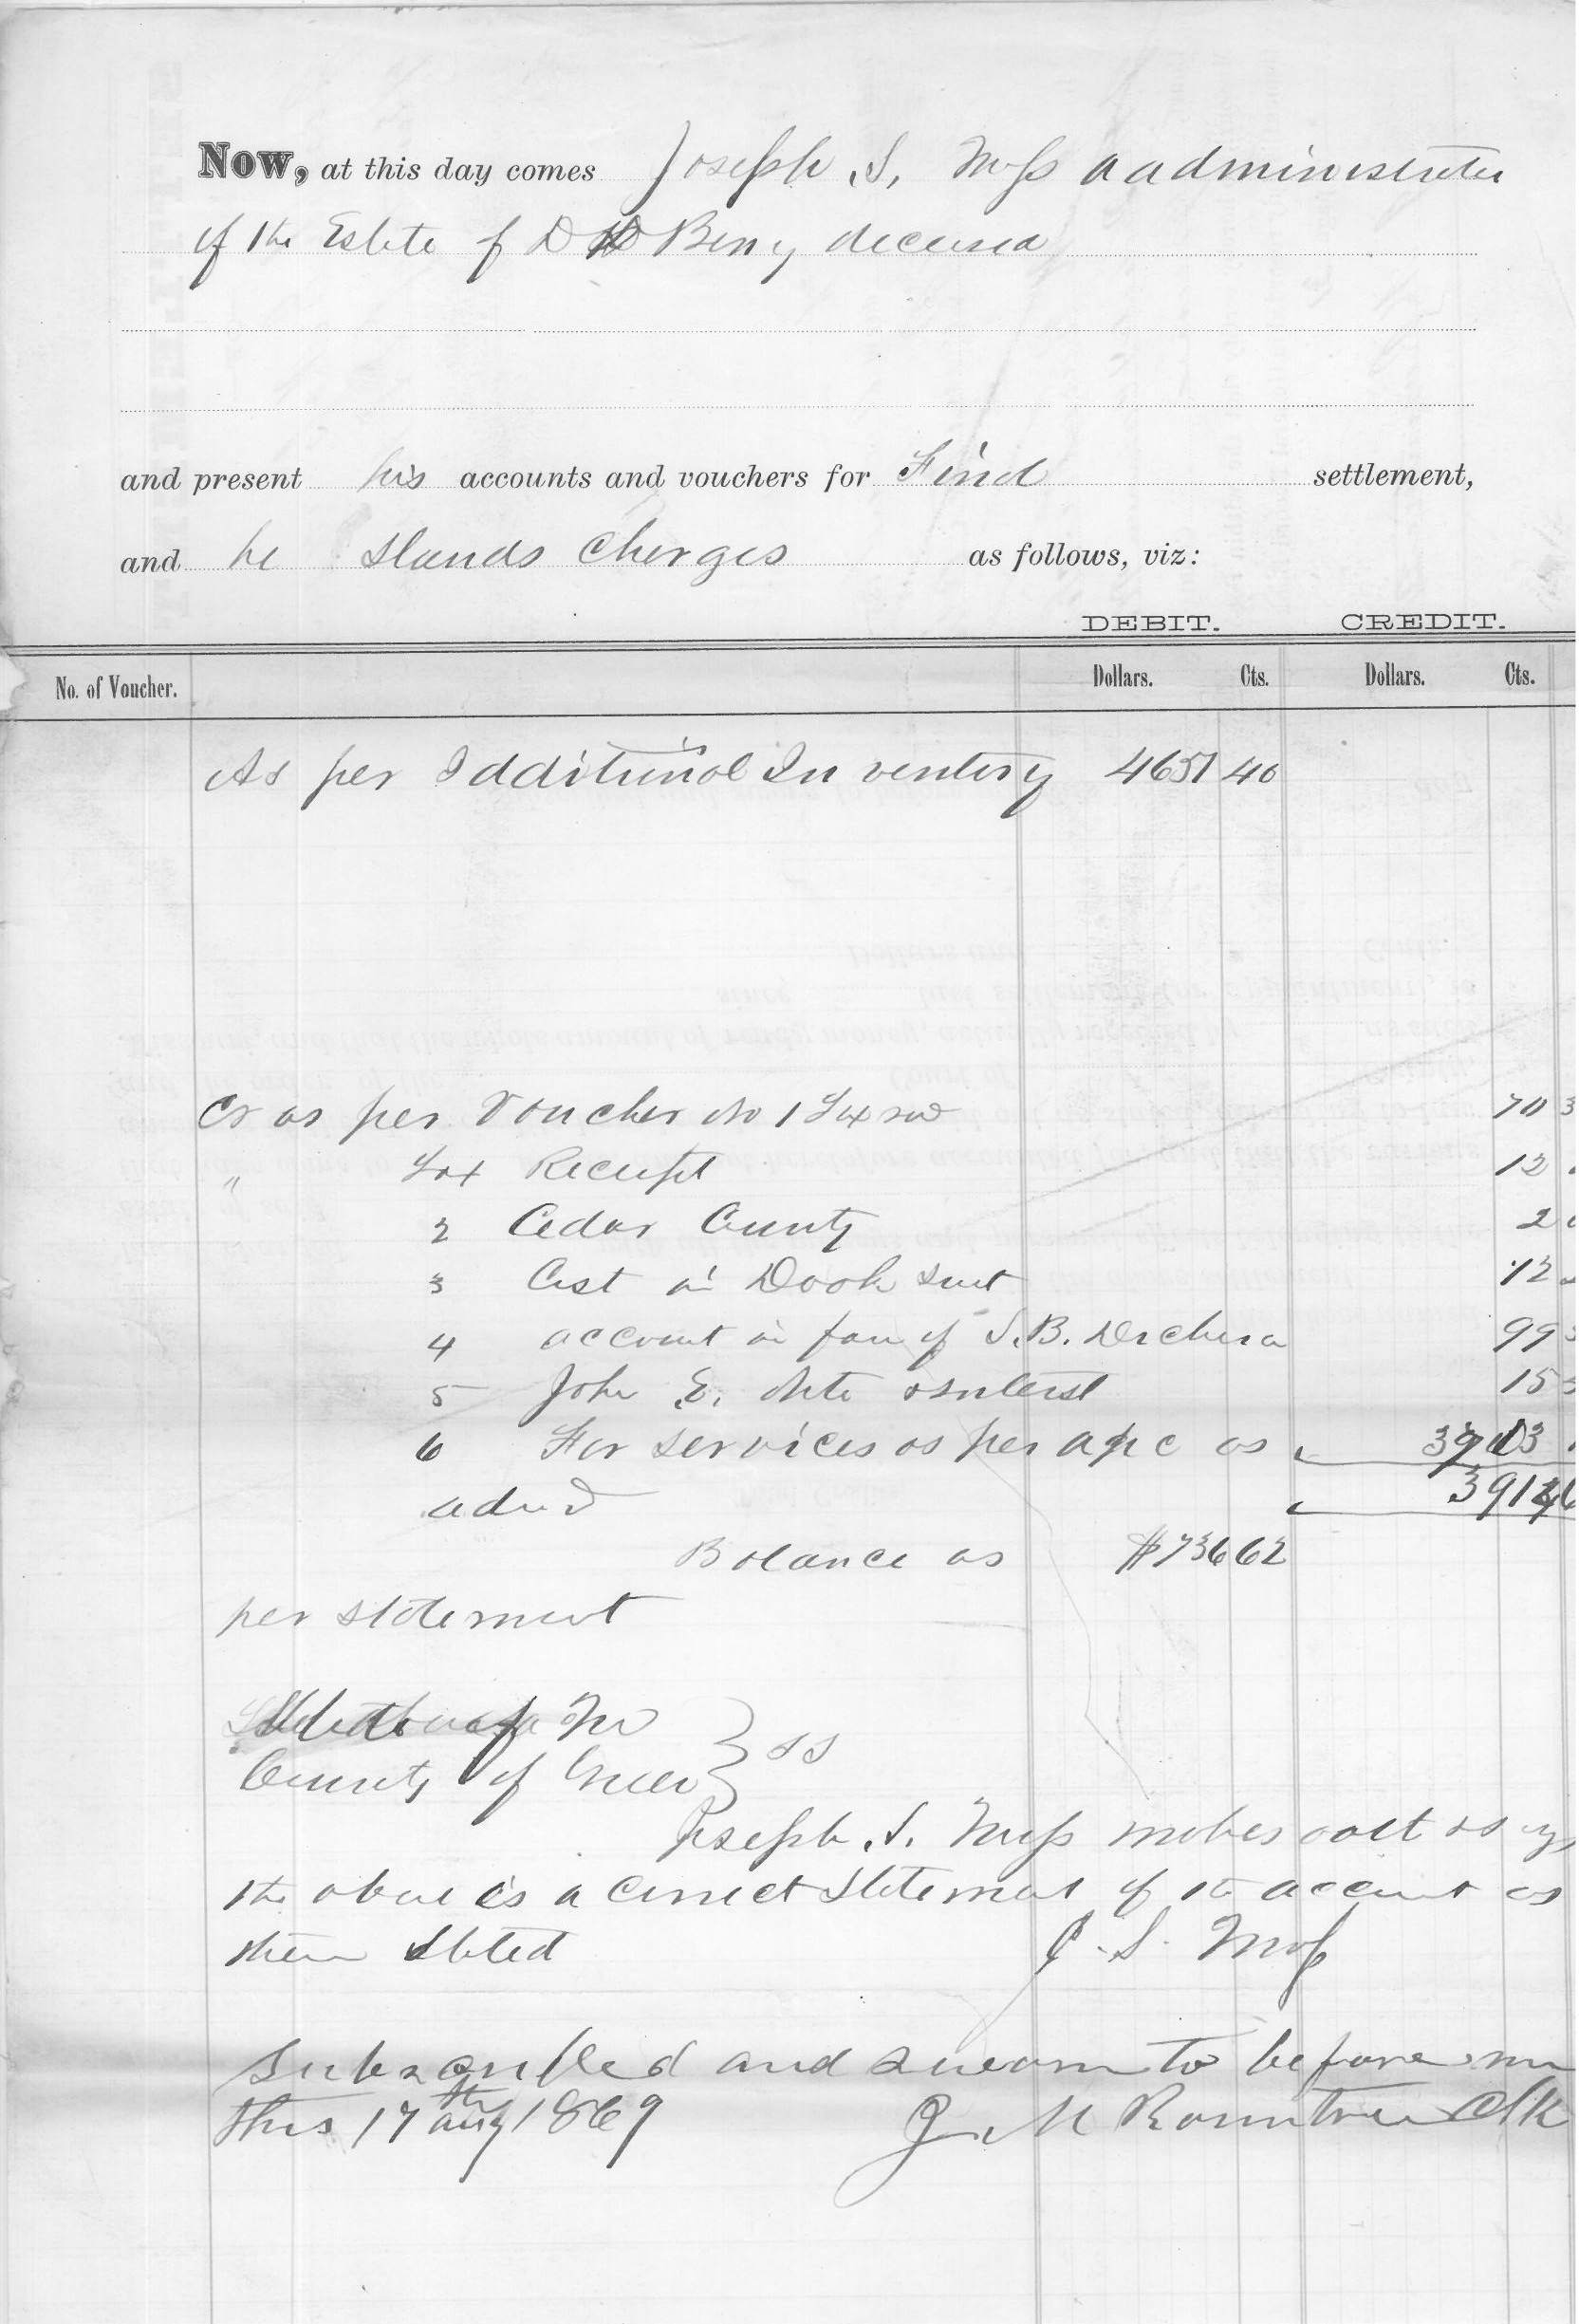 Now, at this day comes Joseph S. Moss a administrator
of the Estate of D D Berry deceased
and present his accounts and vouchers for Final settlement,
and he stands Charges as follows, viz:
DEBIT. CREDIT.
No. of Voucher. Dollars. Cts. Dollars. Cts.
As per Additional Inventory 4651 40
Cr as per Voucher No 1
" Receipt 12
2 Cedar County 2
3 Cost in Dook suit 12
4 account in fav of S. B. 99
5 John E. 15
6 For services as per a/c as
admr
Balance as $736 62
per statement
State of Mo
County of Green } ss
Joseph S. Moss makes oath & says
the above is a correct statement of the account as
therein stated J. S. Moss
Subscribed and sworn to before me
this 17th aug 1869 J. M Rountree Clk